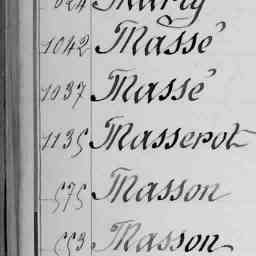 1042 Massé
1037 Massé
1135 Masserot
575 Masson
553 Masson